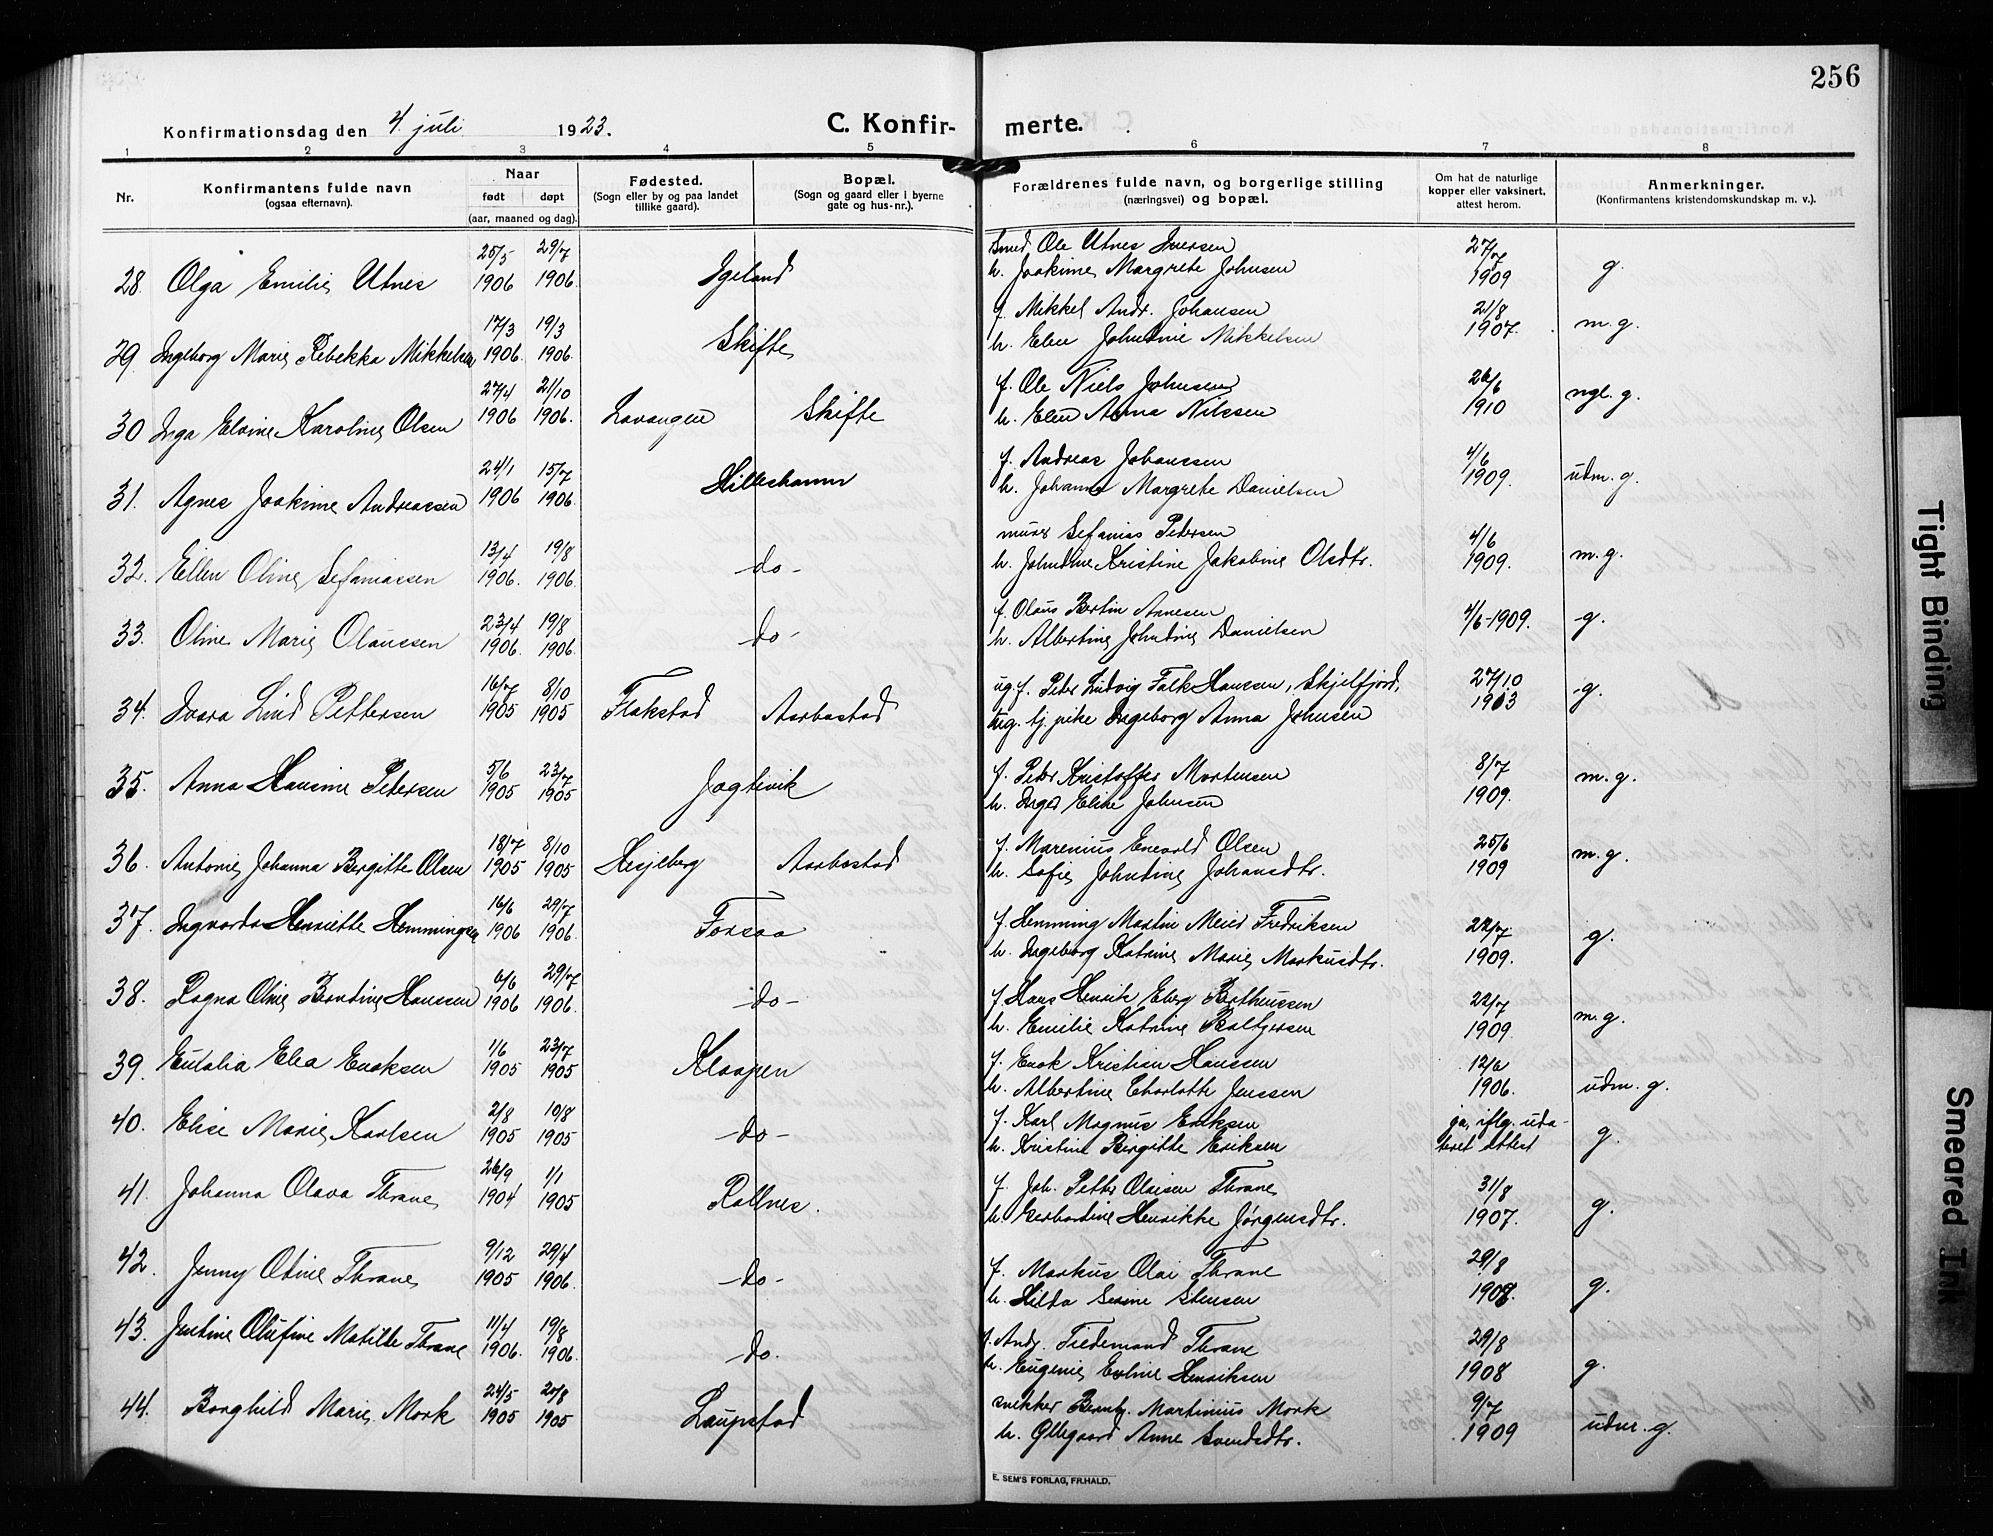 256
Konfirmationsdag den 4. juli 1923.
C. Konfir- merte.
1 2 3 4 5 6 7 8
Nr.
Konfirmantens fulde navn
(ogsaa efternavn).
Naar
født døpt
(aar, maaned og dag).
Fødested.
(Sogn eller by og paa landet
tillike gaard).
Bopæl.
(Sogn og gaard eller i byerne
gate og hus-nr.).
Forældrenes fulde navn, og borgerlige stilling
(næringsvei) og bopæl.
Om hat de naturlige
kopper eller vaksinert,
attest herom.
Anmerkninger.
(Konfirmantens kristendomskundskap m. v.).
28. Olga Emilie Utnes 25/5 1906 29/7 1906. Igeland
Smed Ole Utnes Iversen 27/7
h. Joakime Margrete Johnsen 1909 g.
29. Ingeborg Marie Rebekka Mikkelsen 17/3 1906. 19/3 1906. Skifte
f. Mikkel Andr. Johansen 21/8
h. Elen Johndine Mikkelsen 1907. m.g.
30 Inga Elvine Karoline Olsen 27/4 1906 21/10 1906. Lavangen Skifte
f. Ole Niels Johnsen 26/6
h. Elen Anna Nilssen 1910 ngl. g.
31. Agnes Joakime Andreassen 24/1 1906 15/7 1906. Hilleshamn
f. Andreas Johanssen 4/6
h. Johanna Margrete Danielsen 1909. udm. g.
32. Ellen Oline Sefaniassen 13/4 1906. 19/8 1906. -do-
murer Sefanias Pedersen 4/6
h. Johndine Kristine Jakobine Olsdtr. 1909. m.g.
33. Oline Marie Olaussen 23/4 1906. 19/8 1906. -do-
f. Olaus Bertin Annesen
h. Albertine Johndine Danielsen 4/6-1909. -g.
34. Svara Lind Pettersen 16/7 1905 8/10 1905 Flakstad Aarbostad
ug f. Peder Ludvig Falk Hanssen, Skjelfjord, 27/10
ug. tj. pike Ingeborg Anna Johnsen 1913 -g.
35. Anna Hansine Petersen 5/6 1905 23/7 1905 Jagtevik
f. Peder Kristoffer Mortensen 8/7
h. Inger Eline Johnsen 1909. m.g.
36. Antonie Johanna Bergitte Olsen 18/7 1905 8/10 1905 Hesjeberg Aarbostad
f. Marenius Enevold Olsen 25/6
h. Sofie Johndine Johansdtr. 1909 m.g.
37. Ingvarda Henriette Hemmingsen 16/6 1906 29/7 1906. Forsaa
f. Hemming Martin Meier Fredriksen 22/7
h. Ingeborg Katrine Marie Markusdtr. 1909. g.
38. Ragna Oline Berntine Hanssen 6/6 1906 29/7 1906. -do-
f. Hans Henrik Eberg Bertheussen 22/7
h. Emilie Katrine Baltzersen 1909. m.g.
39. Eutalia Elea Enoksen 1/6 1905 23/7 1905 Klaapen
f. Enok Kristian Hanssen 12/6
h. Albertine Charlotte Jenssen 1906. udm. g.
40. Elise Marie Karlsen 2/8 1905 10/8 1905 -do-
f. Karl Magnus Eriksen ja, iflg. uda-
h. Kristine Birgitte Eriksen teret attest g.
41. Johanna Olava Thrane 26/9 1904 1/1 1905 Rollnes.
f. Joh. Petter Olaisen Thrane 31/8
h. Gerhardine Henrikke Jørgensdtr. 1907. g.
42. Jenny Otine Thrane 9/12 1905 29/4 1906. -do-
f. Markus Olai Thrane 29/8
h. Hilda Sexine Stensen 1908. g.
43. Jentine Olufine Matilde Thrane 11/4 1906. 19/8 1906. -do-
f. Andr. Tiedemand Thrane 29/8
h. Eugenie Evline Henriksen 1908 g.
44. Borghild Marie Mork 24/5 1905 20/8 1905 Laupstad
snikker Berntz. Martinius Mork 9/7
h. Ollegaard Anne Svendsdtr. 1909 udm. g.
E. SEM'S FORLAG, FR.HALD.
Tight Binding
Smeared Ink